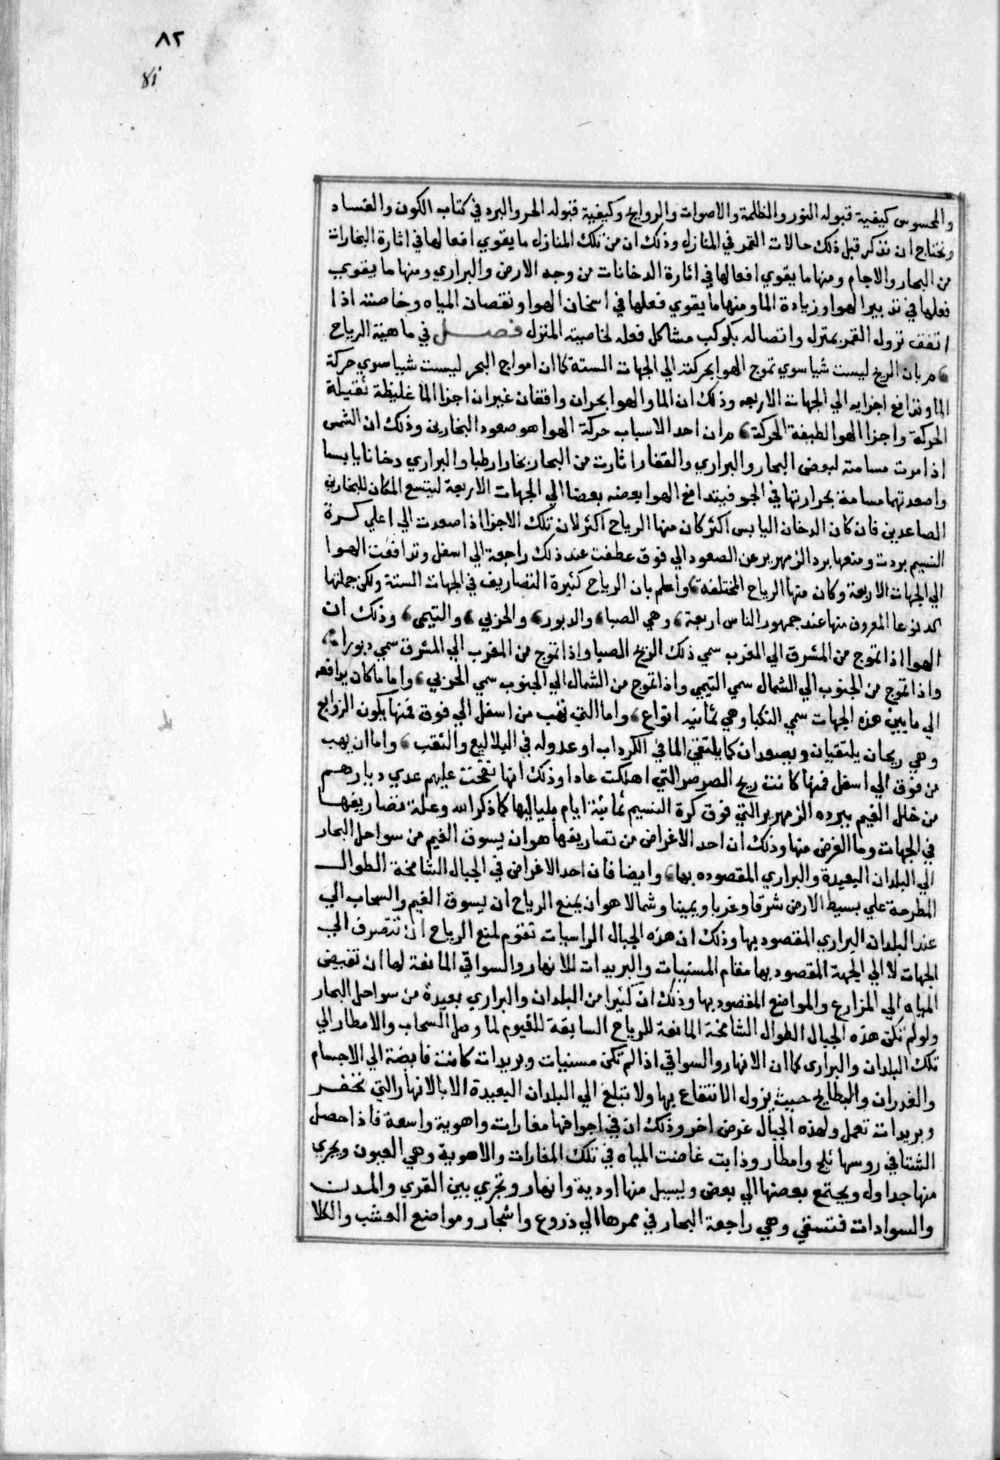 ٨٢
والمحسوس كيفية قبوله النور والظلمة والاصوات والروايح وكيفية قبوله الحر والبرد في كتاب الكون والفساد
ونحتاج ان نذكر قبل ذلك حالات القمر في المنازل وذلك ان من تلك المنازل ما يقوي افعالها في اثارة البخارات
من البحار والاجام ومنها ما يقوي افعالها في اثارة الدخانات من وجه الارض والبراري ومنها ما يقوي
فعلها في تدبير الهوا وزيادة الما ومنها ما يقوي فعلها في اسخان الهوا ونقصان المياه وخاصته اذا
اتفق نزول القمر بمنزله واتصاله بكوكب مشاكل فعله لخاصية المنزل فصل في ماهية الرياح
بان الريح ليست شيا سوي تموج الهوا بحركته الي الجهات الستة كما ان امواج البحر ليست شيا سوي حركة
الما وتدافع اجزايه الي الجهات الاربعه وذلك ان الما والهوا بحران واقفان غير ان اجزا الما غليظة ثقيلة
الحركة واجزا الهوا لطيفة الحركة ان احد الاسباب حركة الهوا هو صعود البخارين وذلك ان الشمس
اذا مرت مسامتة لبعض البحار والبراري والقفار اثارت من البحار بخارا رطبا والبراري دخانا يابسا
واصعدتهما مسامة بحرارتها في الجو فيتدافع الهوا بعضه بعضا الي الجهات الاربعة ليتسع المكان للبخارين
الصاعدين فان كان الدخان اليابس اكثر كان منها الرياح اكثر لان تلك الاجزا اذا صعدت الي اعلي كرة
النسيم بردت ومنعها برد الزمهرير عن الصعود الي فوق عطفت عند ذلك راجعة الي اسفل وتدافعت الهوا
الي الجهات الاربعة وكان منها الرياح المختلفة واعلم بان الرياح كثيرة التصاريف في الجهات الستة ولكن جملتها
نوعا المعروف منها عند جمهور الناس اربعة وهي الصبا والدبور والجربي والتيمي وذلك ان
الهوا اذا تموج من المشرق الي المغرب سمي ذلك الريح الصبا واذا تموج من المغرب الي المشرق سمي دبورا
واذا تموج من الجنوب الي الشمال سمي التيمي واذا تموج من الشمال الي الجنوب سمي الجربي واما ما كان
الي ما بين هذه الجهات سمي النكبا وهي ثمانيه انواع واما التي تهب من اسفل الي فوق فمنها يكون الزوابع
وهي ريحان يلتقيان ويصعدان كما يلتقي الما في الكرداب او عدوله في البلاليع والثقب واما ان يهب
من فوق الي اسفل فمنها كانت ريح الصرصر التي اهلكت عادا وذلك انها نفخت عليهم عدي ديارهم
من خلل الغيم ببرده الزمهرير التي فوق كرة النسيم ثمانية ايام بلياليها كما ذكر الله وعلة تصاريفها
في الجهات وما الغرض منها وذلك ان احد الاغراض من تصاريفها هو ان يسوق الغيم من سواحل البحار
الي البلدان البعيدة والبراري المقصوده بها وايضا فان احد الاغراض في الجبال الشامخة الطوال
المطرحة علي بسيط الارض شرقا وغربا ويمينا وشمالا هو ان يمنع الرياح ان يسوق الغيم والسحاب الي
عند البلدان البراري المقصود بها وذلك ان هذه الجبال الراسيات تقوم لمنع الرياح ان تتصرف الي
الجهات لا الي الجهة المقصود بها مقام المسنيات والبريدات للانهار والسواقي المانعة لها ان تفيض
المياه الي المزارع والمواضع المقصود بها وذلك ان كثيرا من البلدان والبراري بعيدة من سواحل البحار
ولو لم تكن هذه الجبال الطوال الشامخة المانعة للرياح السايقة للغيوم لما وصل السحاب والامطار الي
تلك البلدان والبراري كما ان الانهار والسواقي اذا لم تكن مسنيات وبريدات كانت فايضة الي الاجسام
والغدران والبطايح حيث يزول الانتفاع بها ولا تبلغ الي البلدان البعيدة الا بالانهار التي تحفر
وبريدات تعمل ولهذه الجبال غرض اخر وذلك ان في اجوافها مغارات واهوية واسعة فاذا حصل
الشتا في روسها ثلج وامطار وذابت غاضت المياه في تلك المغارات والاهوية وهي العيون ويجري
منها جداول ويجتمع بعضها الي بعض ويسيل منها اودية وانهار وتجري بين القري والمدن
والسوادات فتسقي وهي راجعة البحار في ممرها الي ذروع واشجار ومواضع العشب والكلا